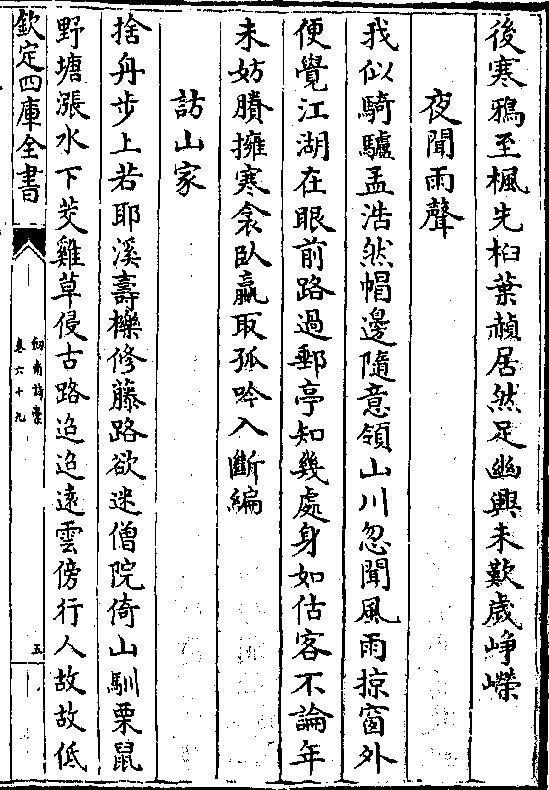 後寒鴉至楓先桕葉赬居然足幽興未歎歲崢嶸
夜聞雨聲
我似騎驢孟浩然帽邊隨意領山川忽聞風雨掠窗外
便覺江湖在眼前路過郵亭知幾處身如估客不論年
未妨賸擁寒衾臥贏取孤吟入斷編
訪山家
捨舟步上若耶溪壽櫟修藤路欲迷僧院倚山馴栗鼠
野塘漲水下茭雞草侵古路迢迢遠雲傍行人故故低
欽定四庫全書
劍南詩槀
卷六十九
五